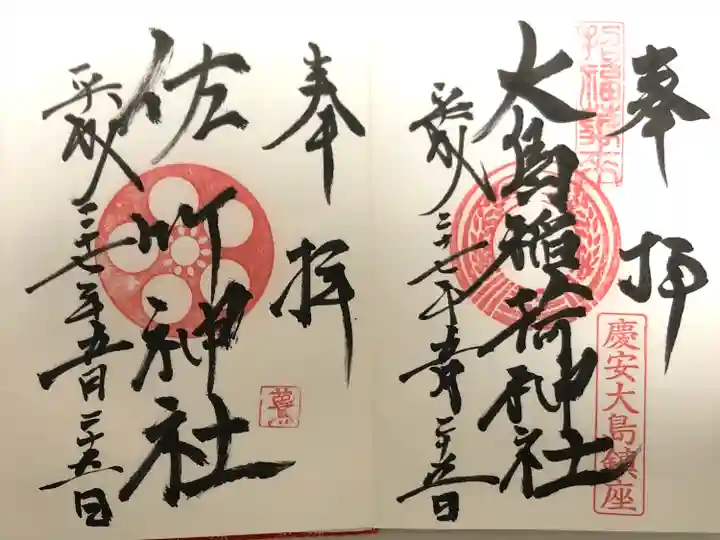 奉拝
大島稲荷神社
平成二十七年五月二十五日
慶安大島鎮座
奉拝
佐竹神社
平成二十七年五月二十五日